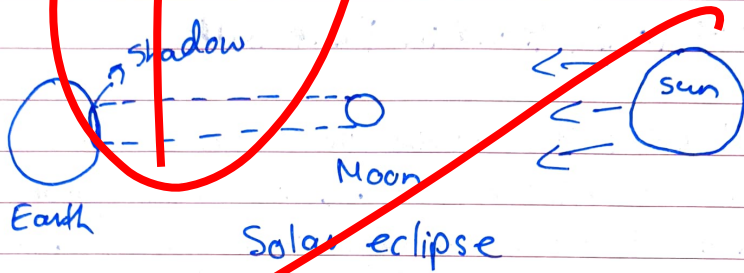 shadow
sun
Moon
Earth
Solar eclipse